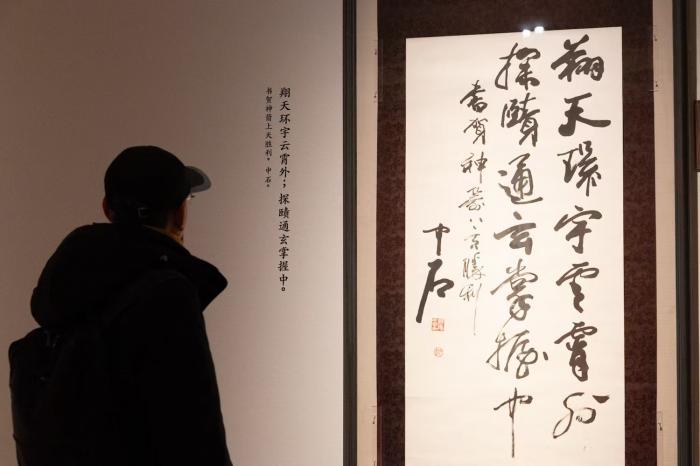 翔天環宇雲霄外
探賾通玄掌握中
書賀神箭上天勝利
中石
翔天环宇云霄外；探赜通玄掌握中。
书贺神箭上天胜利。中石。